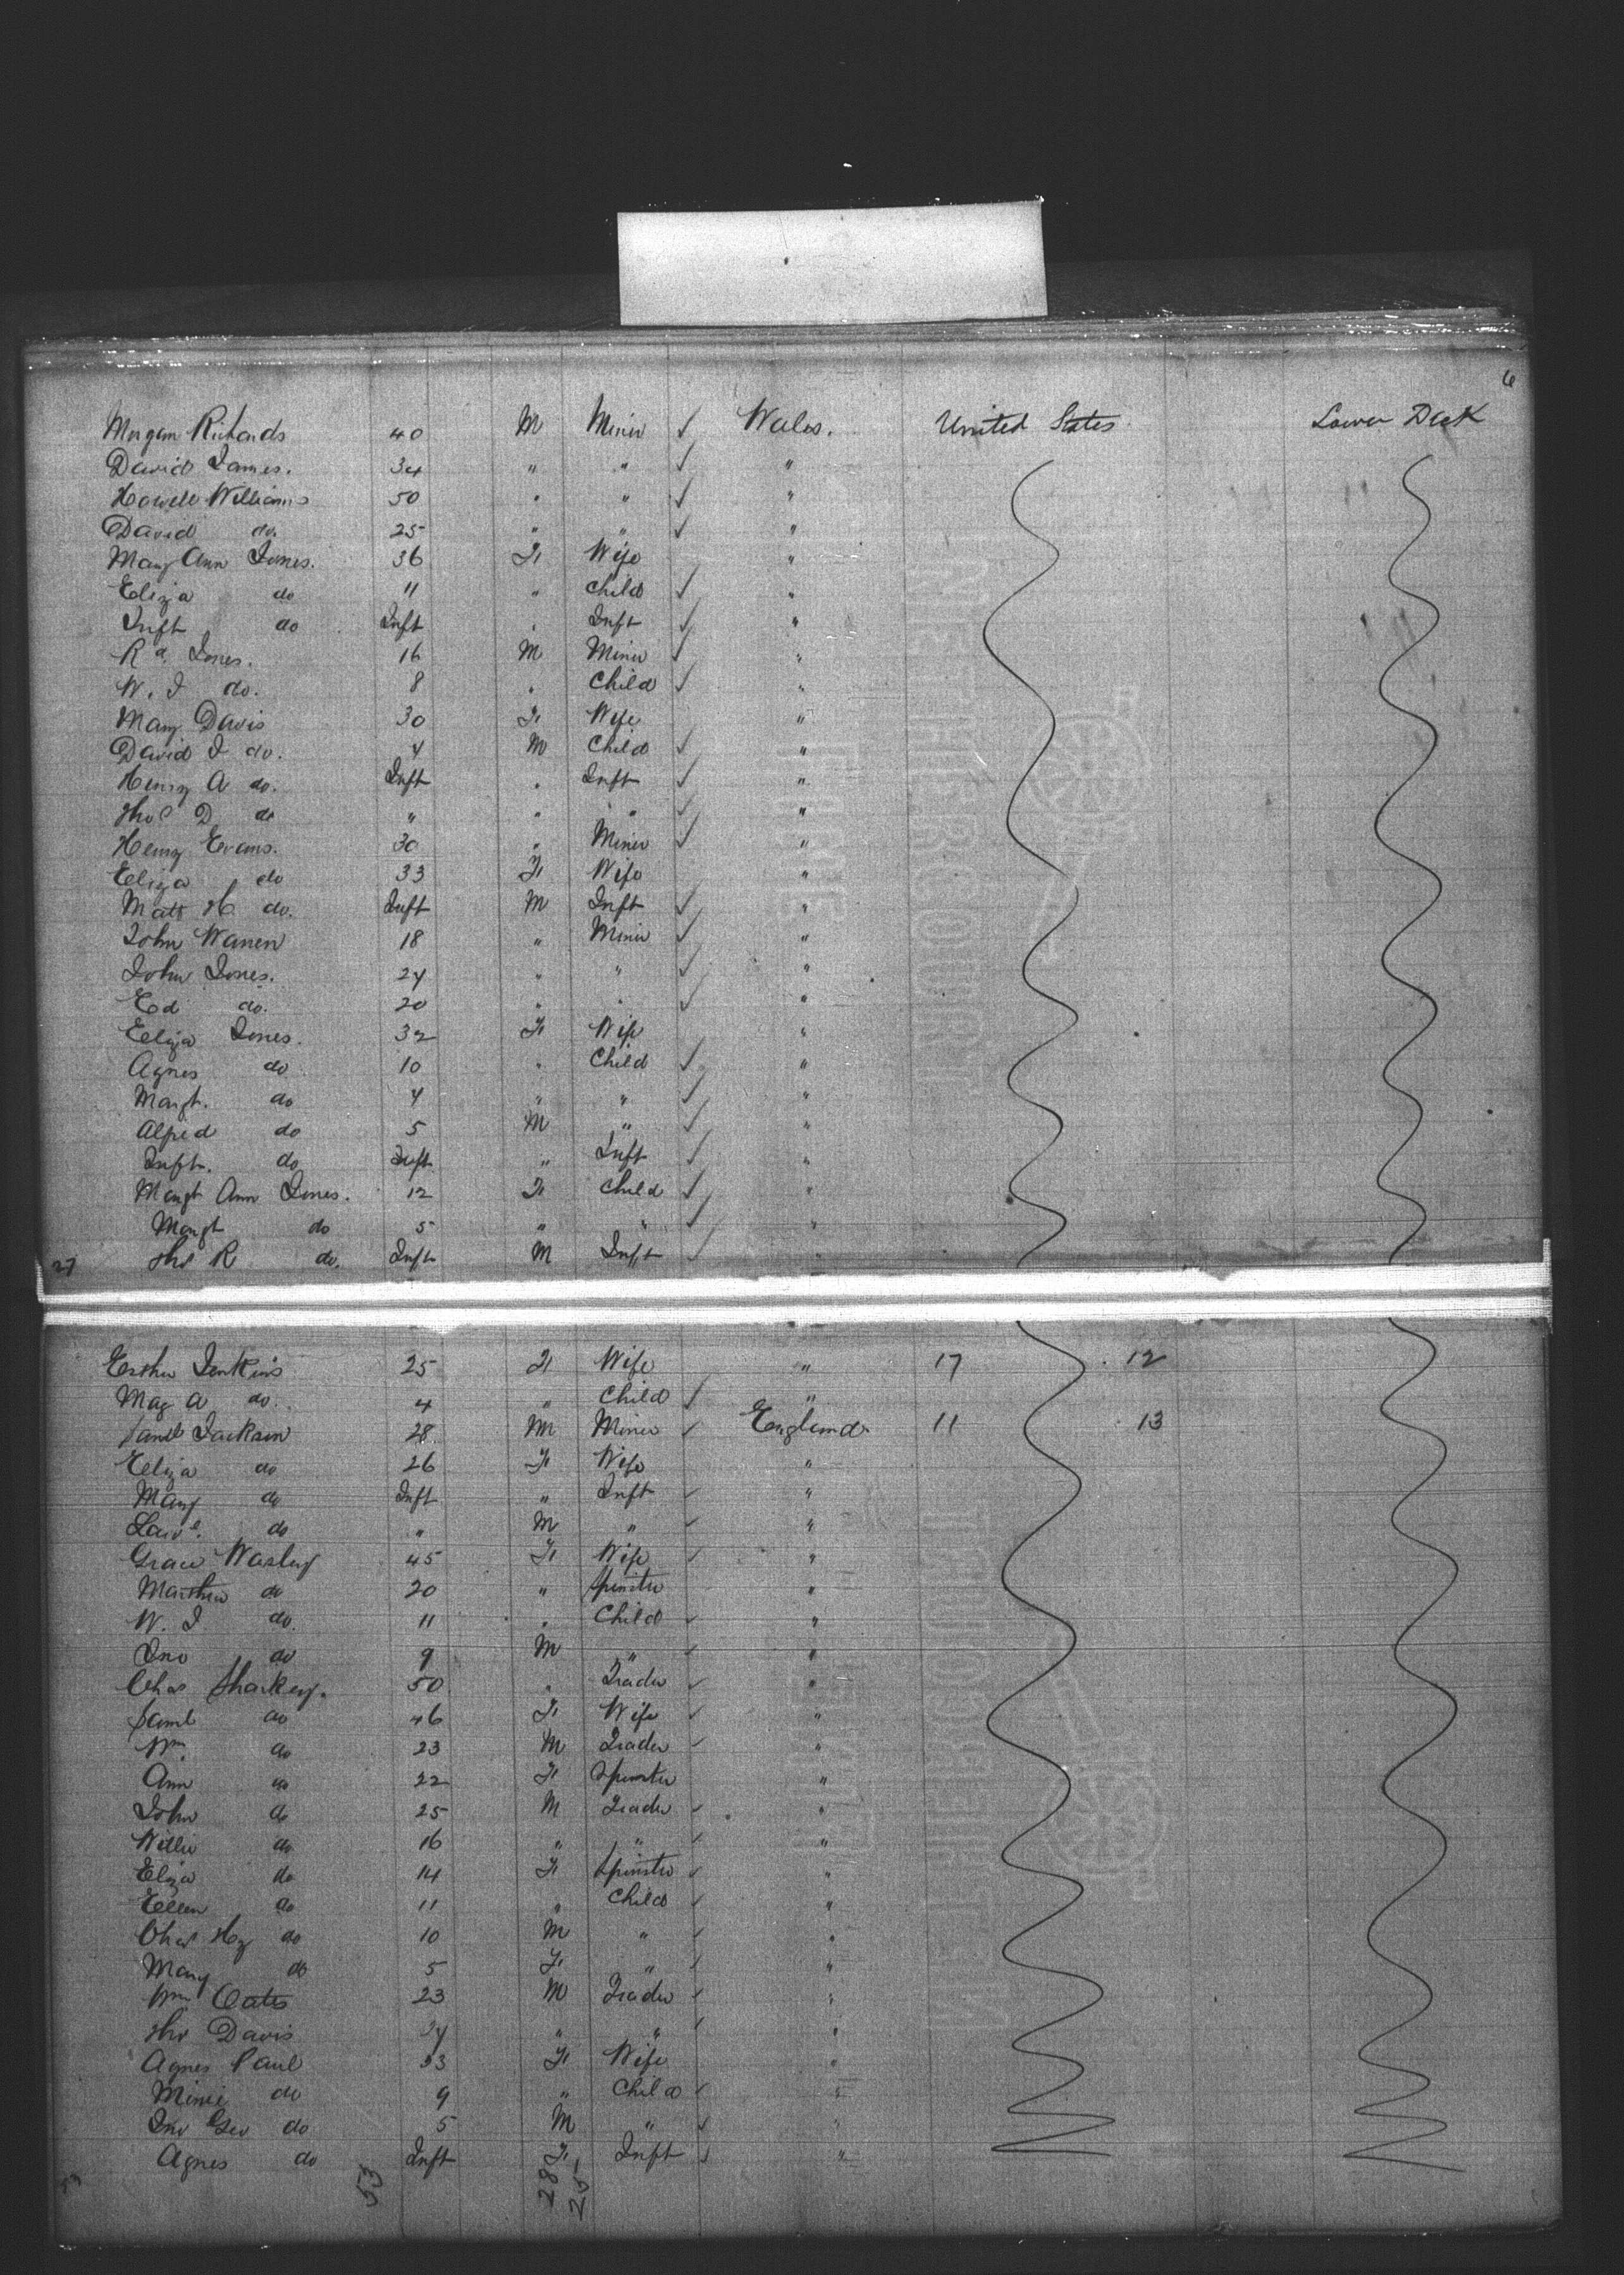 6
Morgan Richards 40 M Miner ✓ Wales. United States Lower Deck
David James. 34 " " ✓ "
Howell Williams 50 " " ✓ "
David do. 25 " " ✓ "
Mary Ann Jones. 36 F Wife "
Eliza do 11 " Child ✓ "
Inft do Inft " Inft ✓ "
Rd. Jones. 16 M Miner ✓ "
W. J do. 8 " Child ✓ "
Mary Davis 30 F Wife "
David J do. 4 M Child ✓ "
Henry A do. Inft " Inft ✓ "
Thos D do " " " ✓ "
Henry Evans. 30 " Miner ✓ "
Eliza do 33 F Wife "
Matt H do. Inft M Inft ✓ "
John Warren 18 " Miner ✓ "
John Jones. 24 " " ✓ "
Ed do. 20 " " ✓ "
Eliza Jones. 32 F Wife "
Agnes do 10 " Child ✓ "
Margt. do 4 " " ✓ "
Alfred do 5 M " ✓ "
Inft. do Inft " Inft ✓ "
Margt Ann Jones. 12 F Child ✓ "
Margt do 5 " " ✓ "
27 Thos R do. Inft M Inft ✓ "
Esther Jenkins 25 F Wife " 17 12
Mag A do. 4 " Child ✓ "
Saml Jackson 28 M Miner ✓ England. 11 13
Eliza do 26 F Wife "
Mary do Inft " Inft ✓ "
do " M " ✓ "
Grace 45 F Wife ✓ "
do 20 " Spinster "
W. J do. 11 " Child ✓ "
Jno do 9 M " ✓ "
Chas Sharkey. 50 " Trader ✓ "
Saml do 46 F Wife ✓ "
Wm do 23 M Trader ✓ "
Ann do 22 F Spinster "
John do 25 M Trader ✓ "
Willie do 16 " " ✓ "
Eliza do 14 F Spinster ✓ "
Ellen do 11 " Child ✓ "
Chas Hy do 10 M " ✓ "
Mary do 5 F " ✓ "
Wm Oates 23 M Trader ✓ "
Thos Davis 24 " " ✓ "
Agnes Paul 33 F Wife "
Minie do 9 " Child ✓ "
Jno Geo do 5 M " ✓ "
Agnes do Inft F Inft ✓ "
53 53 28 25